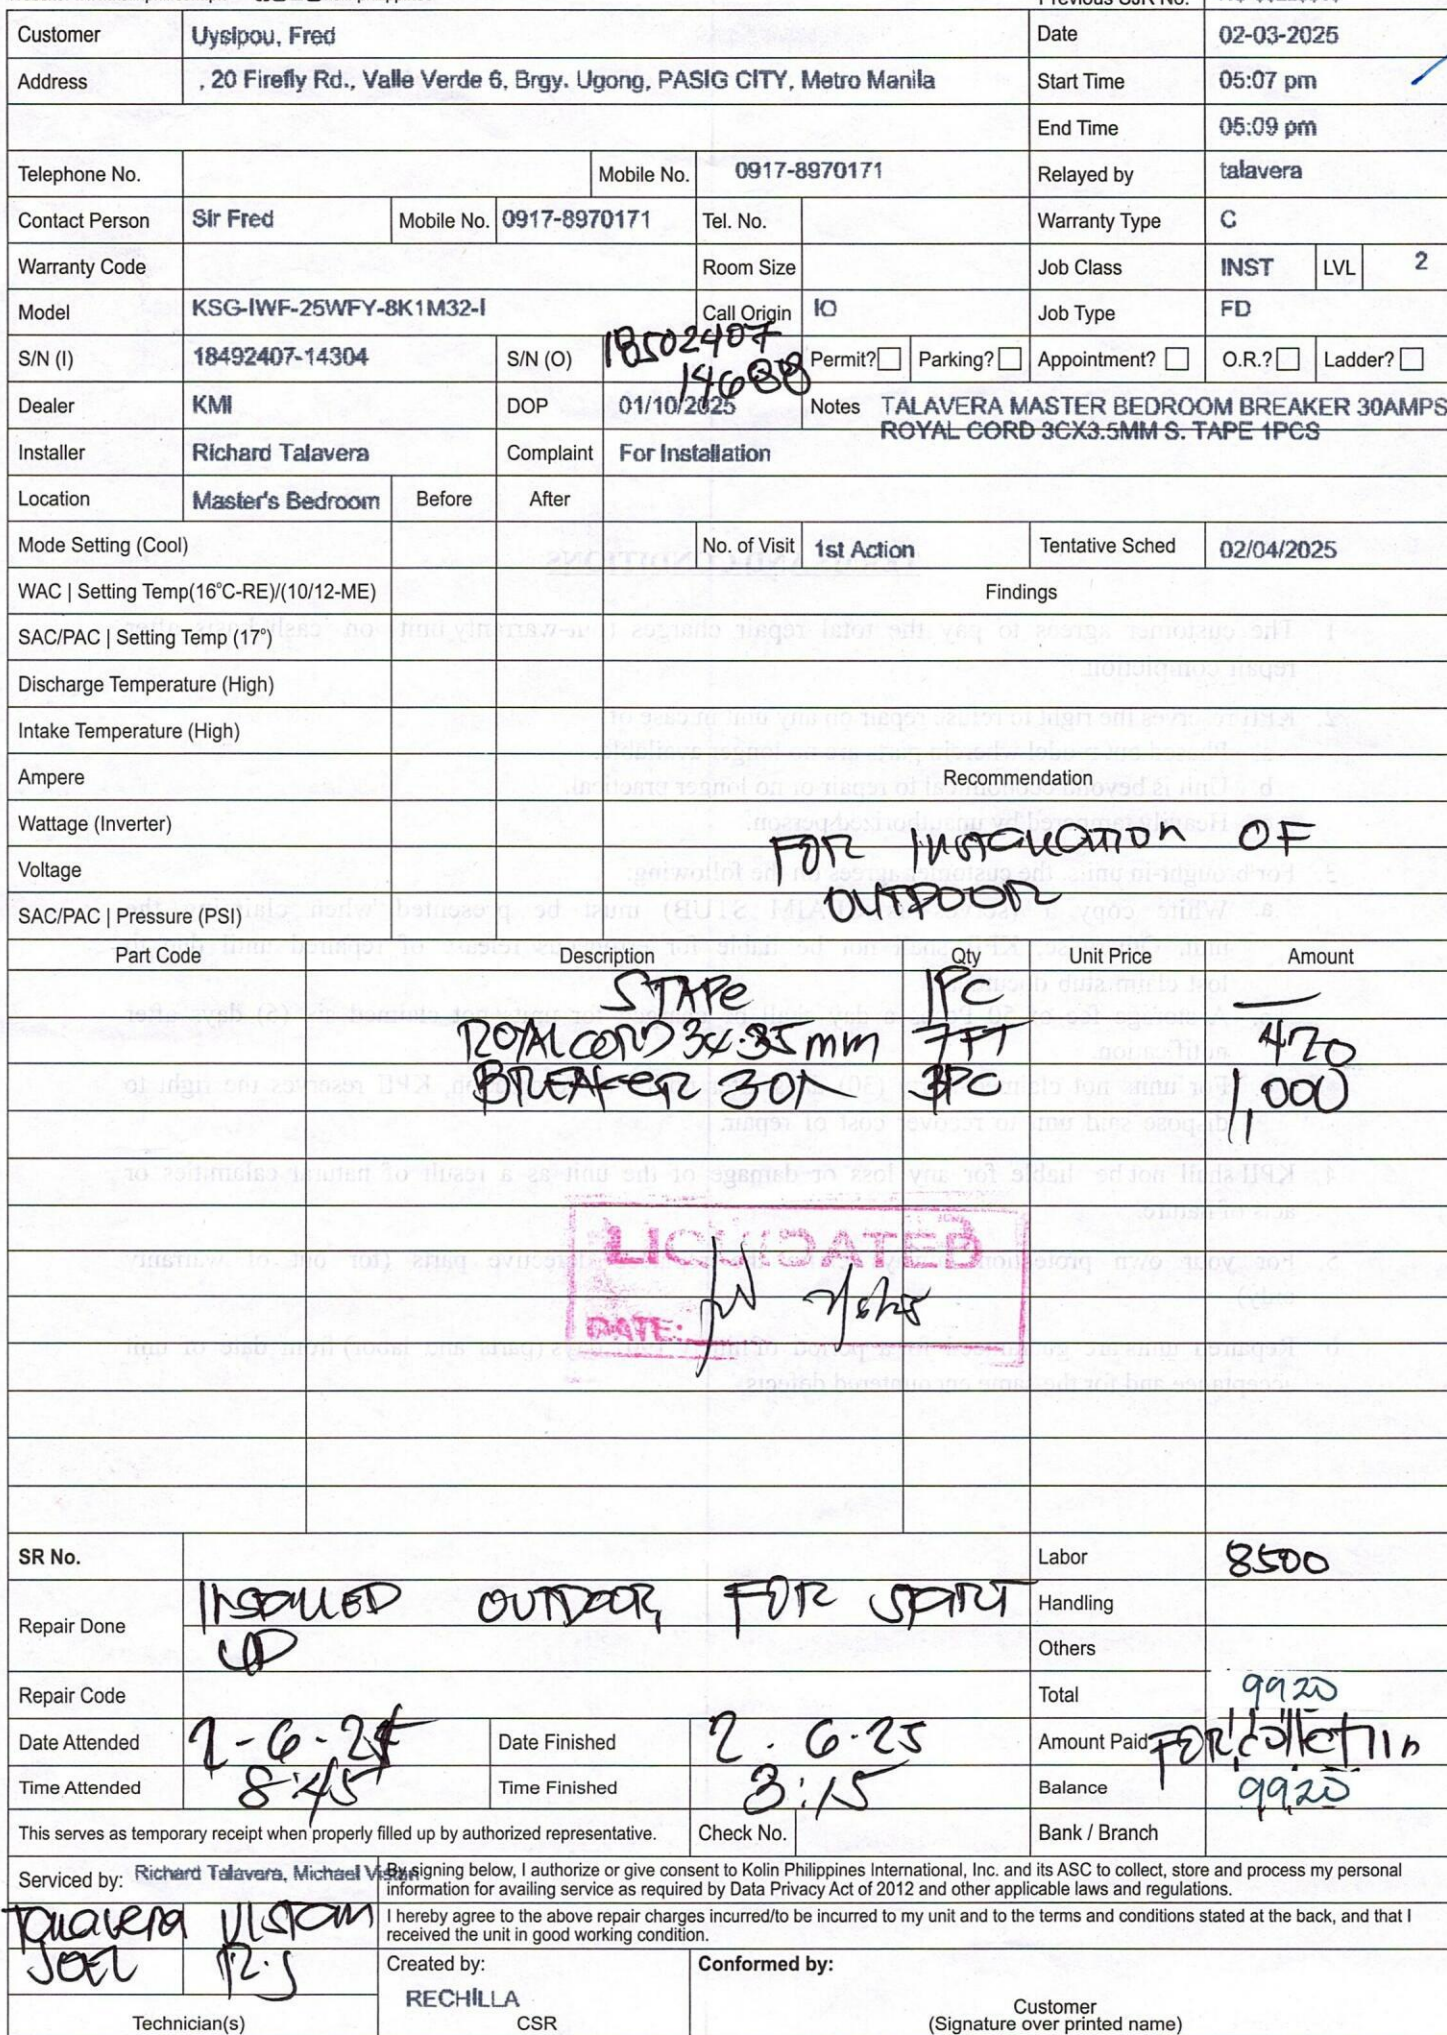 Customer Uysipou, Fred Date 02-03-2025
Address , 20 Firefly Rd., Valle Verde 6, Brgy. Ugong, PASIG CITY, Metro Manila Start Time 05:07 pm
End Time 05:09 pm
Telephone No. Mobile No. 0917-8970171 Relayed by talavera
Contact Person Sir Fred Mobile No. 0917-8970171 Tel. No. Warranty Type C
Warranty Code Room Size Job Class INST LVL 2
Model KSG-IWF-25WFY-8K1M32-I Call Origin IO Job Type FD
S/N (I) 18492407-14304 S/N (O) 18502407 Permit? Parking? Appointment? O.R.? Ladder?
Dealer KMI DOP 01/10/2025 Notes TALAVERA MASTER BEDROOM BREAKER 30AMPS
ROYAL CORD 3CX3.5MM S. TAPE 1PCS
Installer Richard Talavera Complaint For Installation
Location Master's Bedroom Before After
Mode Setting (Cool) No. of Visit 1st Action Tentative Sched 02/04/2025
WAC | Setting Temp(16°C-RE)/(10/12-ME) Findings
SAC/PAC | Setting Temp (17°)
Discharge Temperature (High)
Intake Temperature (High)
Ampere Recommendation
Wattage (Inverter) FOR INSTALLATION OF
Voltage OUTDOOR
SAC/PAC | Pressure (PSI)
Part Code Description Qty Unit Price Amount
S TAPE 1PC —
ROYAL CORD 7FT 420
BREAKER 30A PC 1,000
LIQUIDATED
DATE:
SR No. Labor 8500
Repair Done INSTALLED OUTDOOR, FOR START Handling
UP Others
Repair Code Total 9920
Date Attended 2-6-25 Date Finished 2.6.25 Amount Paid FOR Collection
Time Attended 8:45 Time Finished 3:15 Balance 9920
This serves as temporary receipt when properly filled up by authorized representative. Check No. Bank / Branch
Serviced by: Richard Talavera, Michael Vistan By signing below, I authorize or give consent to Kolin Philippines International, Inc. and its ASC to collect, store and process my personal
information for availing service as required by Data Privacy Act of 2012 and other applicable laws and regulations.
Talavera Vistan I hereby agree to the above repair charges incurred/to be incurred to my unit and to the terms and conditions stated at the back, and that I
received the unit in good working condition.
JOEL R.J Created by: Conformed by:
RECHILLA
Technician(s) CSR Customer
(Signature over printed name)